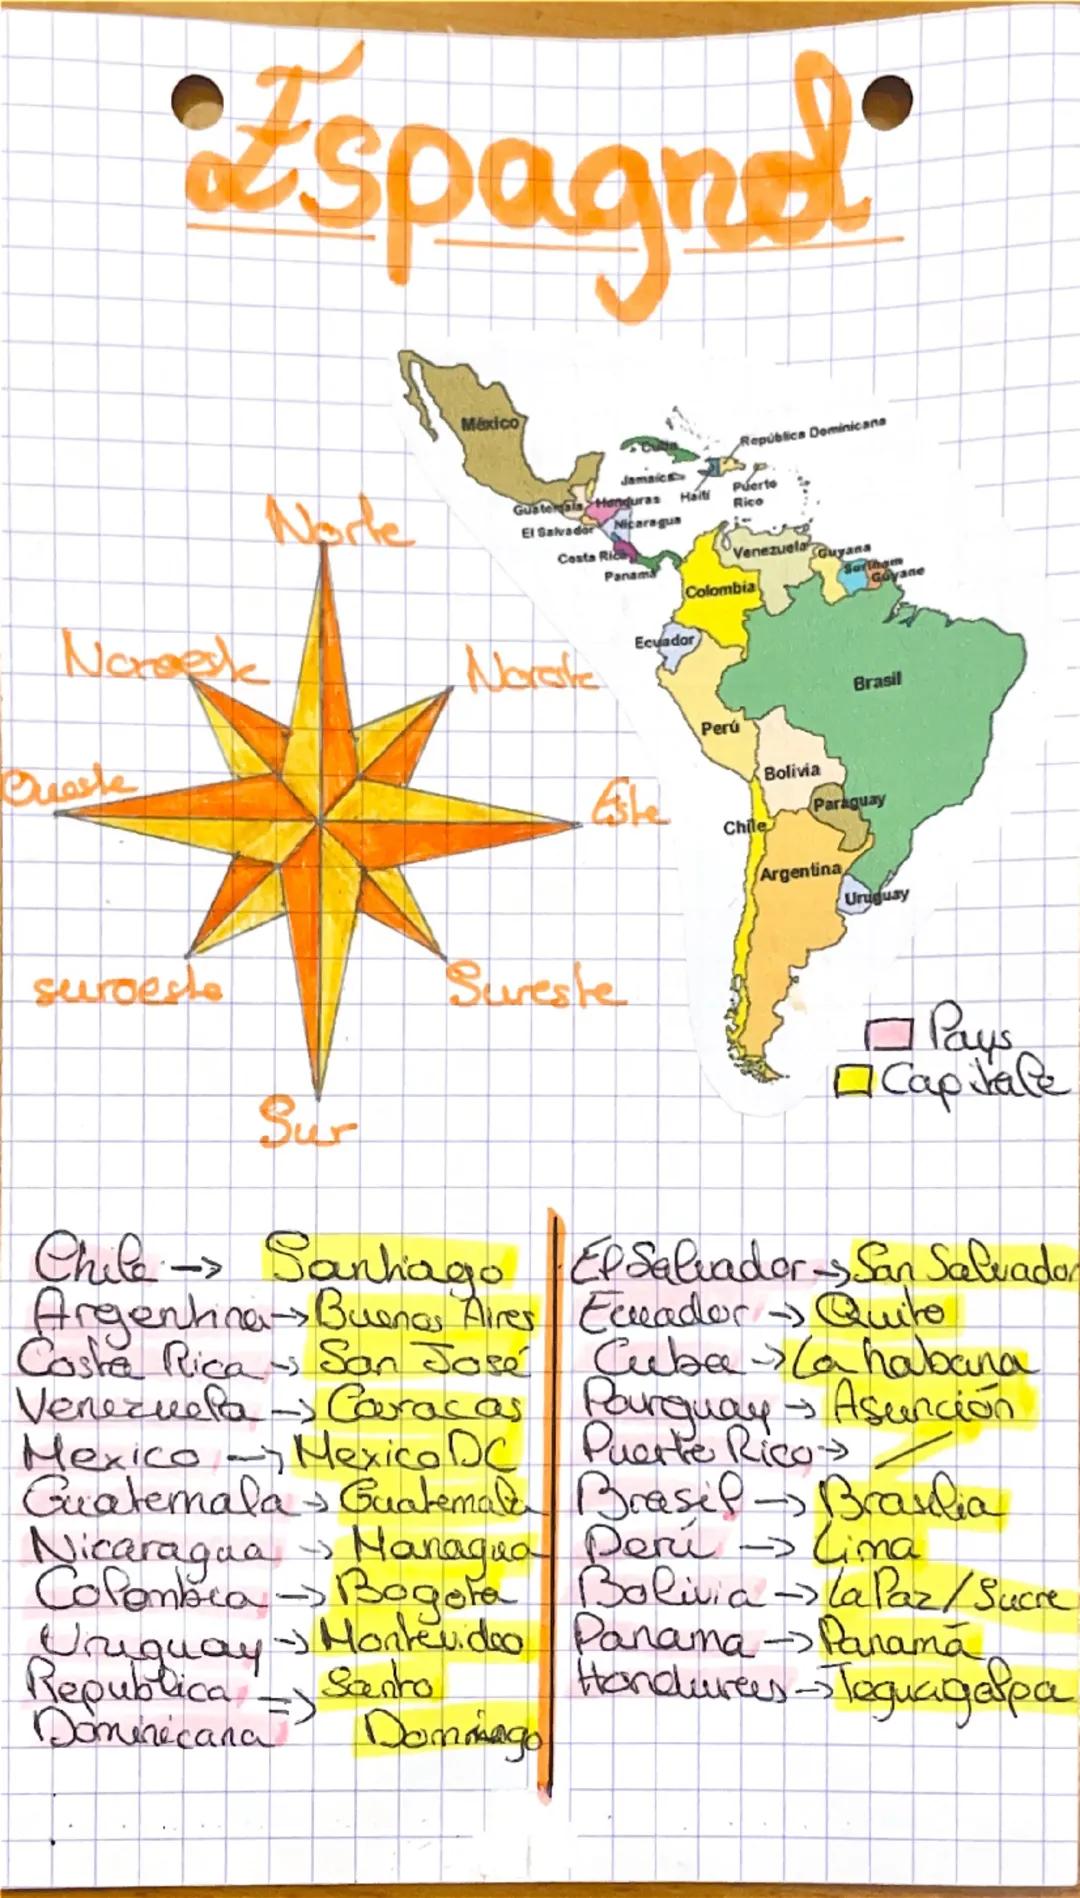 Espagnol
México
Cuba
República Dominicana
Jamaica
Haití
Puerto
Rico
Guatemala
Honduras
El Salvador
Nicaragua
Costa Rica
Panamá
Venezuela
Guyana
Surinam
Guyane
Colombia
Ecuador
Brasil
Perú
Bolivia
Paraguay
Chile
Argentina
Uruguay
Norte
Noroeste
Noreste
Oueste
Este
suroeste
Sureste
Sur
Pays
Capitale
Chile → Santiago
Argentina → Buenos Aires
Costa Rica → San José
Venezuela → Caracas
Mexico → Mexico DC
Guatemala → Guatemala
Nicaragua → Managua
Colombia → Bogota
Uruguay → Montevideo
Republica → Santo
Dominicana Domingo
El Salvador → San Salvador
Ecuador → Quito
Cuba → La habana
Paurguay → Asunción
Puerto Rico → /
Brasil → Brasilia
Perú → Lima
Bolivia → La Paz / Sucre
Panama → Panamá
Honduras → Teguagalpa